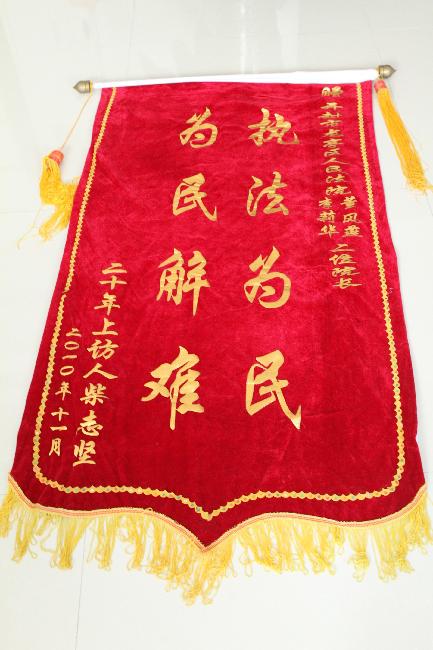 赠开封市中级人民法院
李新华
二位院长
执法为民
为民解难
二十年上访人柴志坚
二〇一〇年十一月